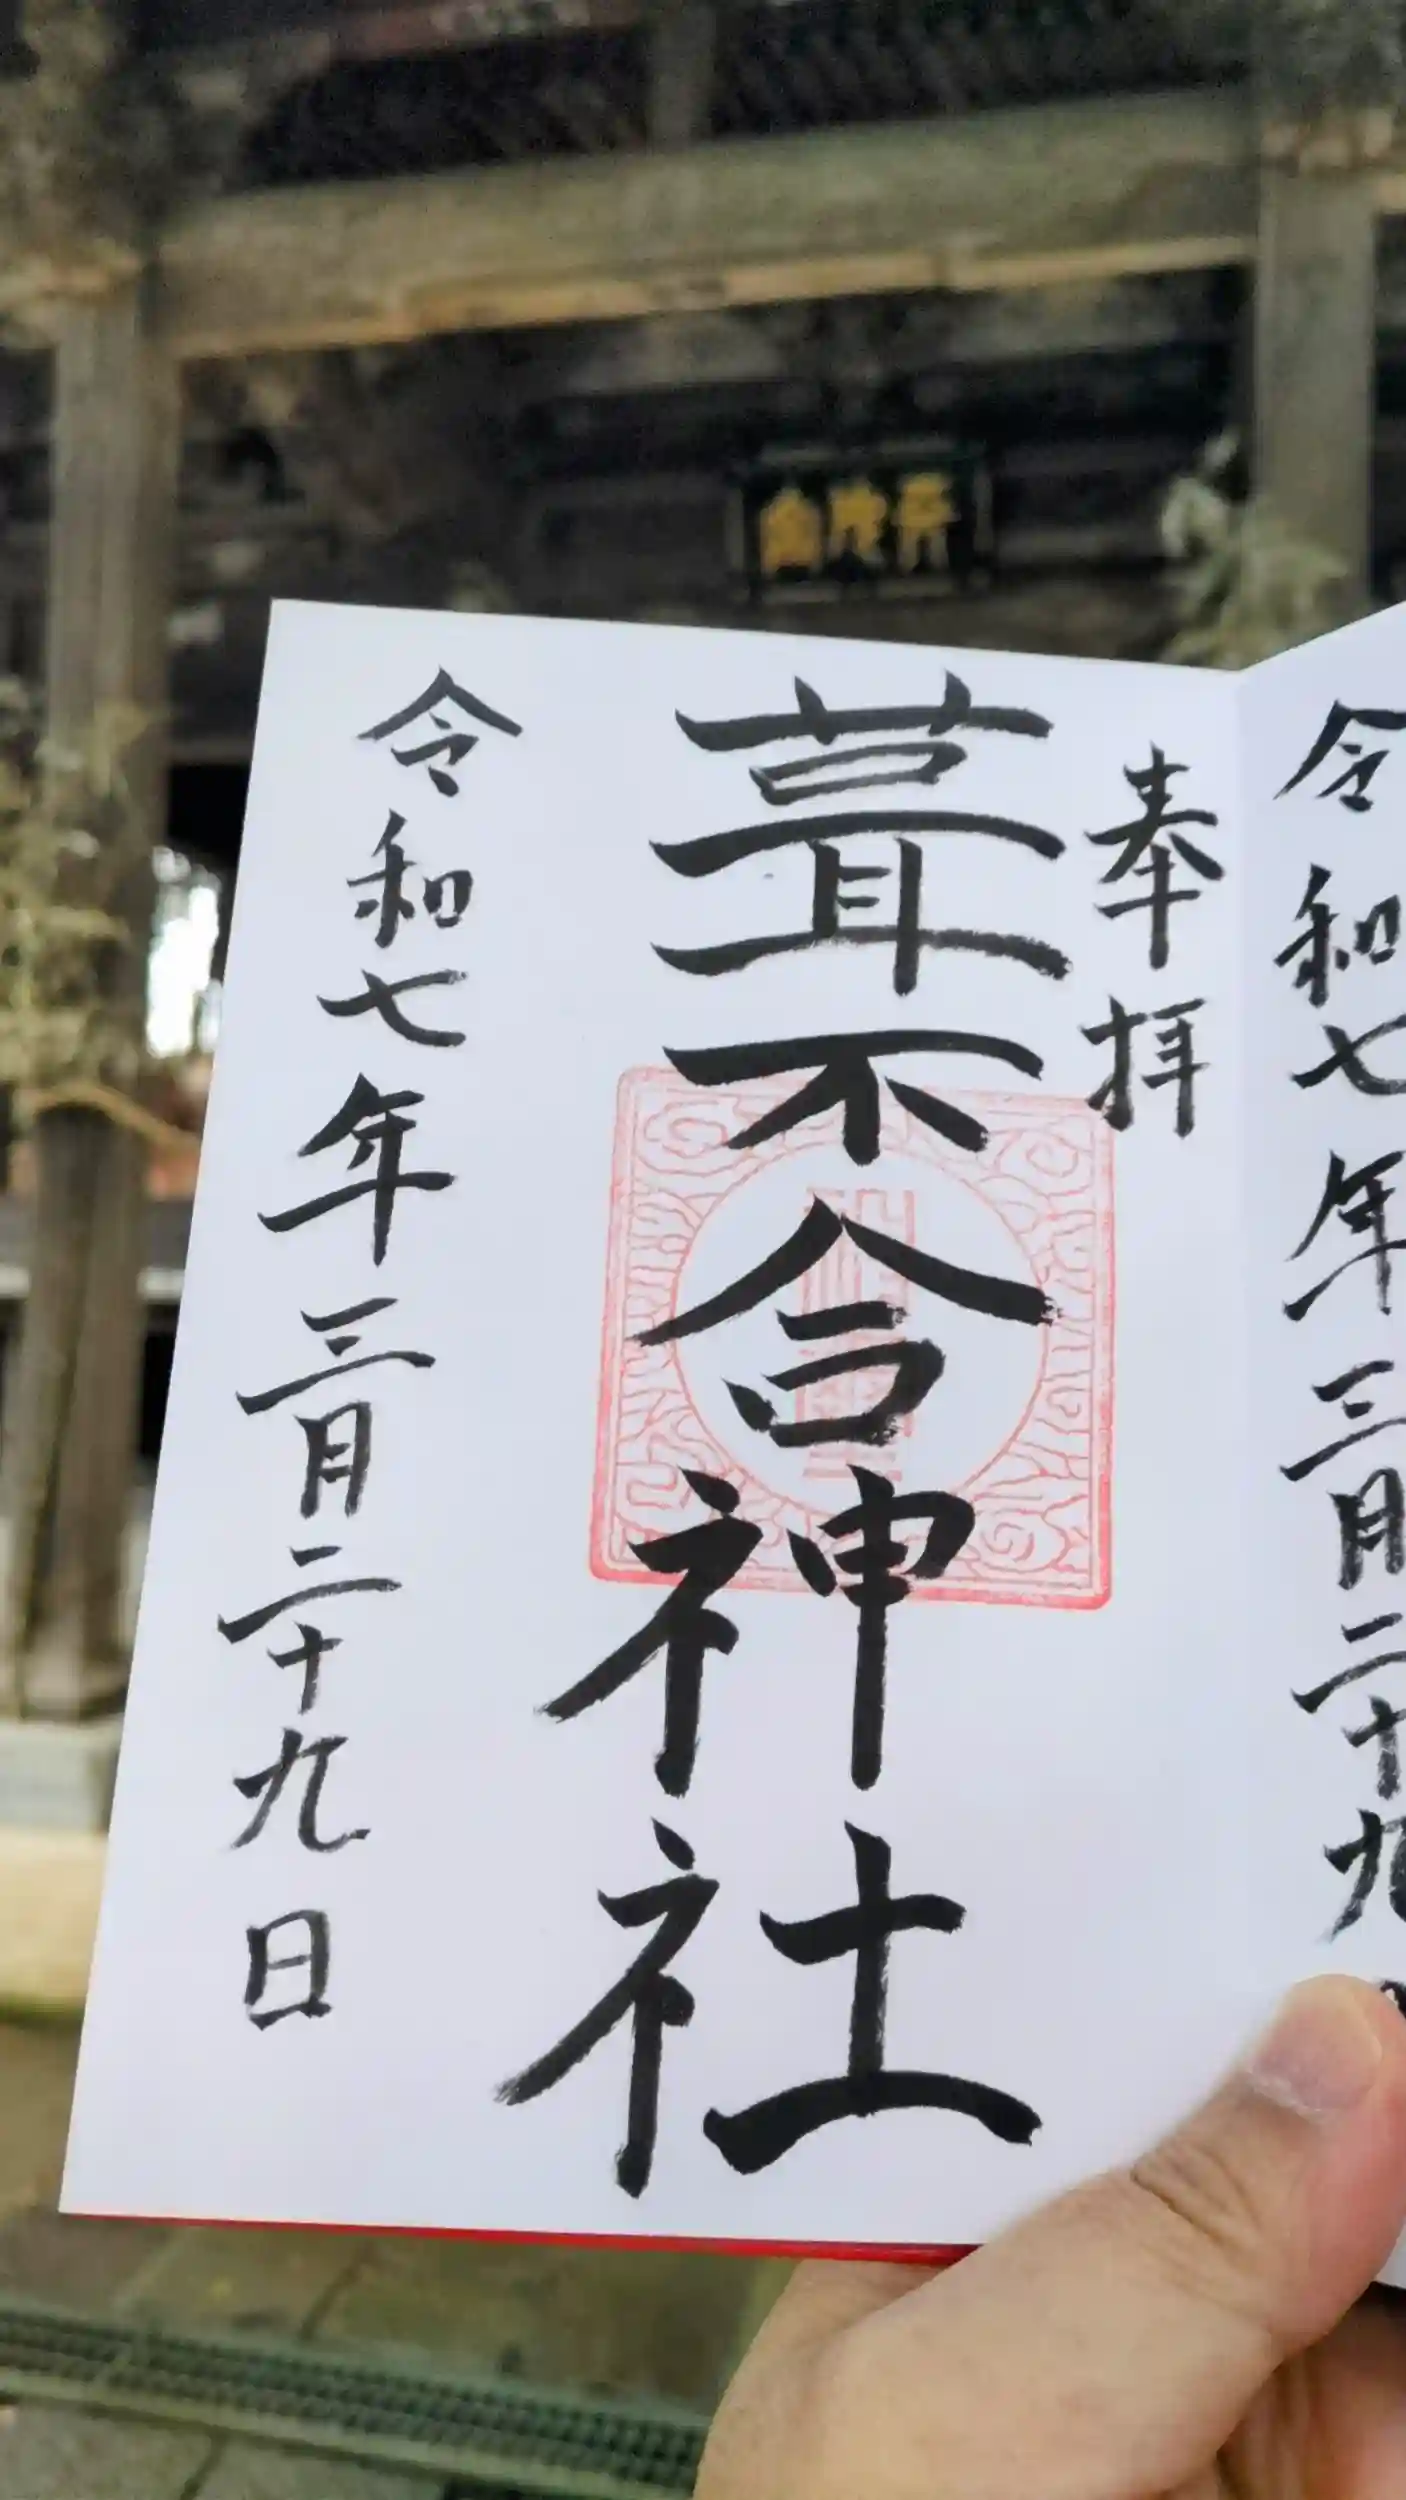 令和七年三月二十九
奉拝
葺不合神社
令和七年三月二十九日